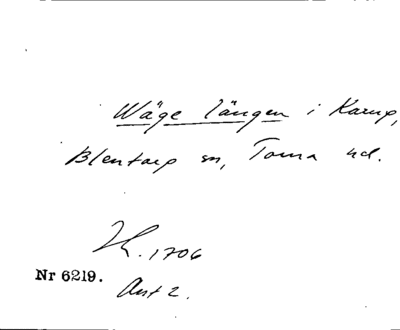 Wäge längen i Karup,
Blentarp sn, Torna hd.
Lk. 1706
Nr 6219.
Akt 2.